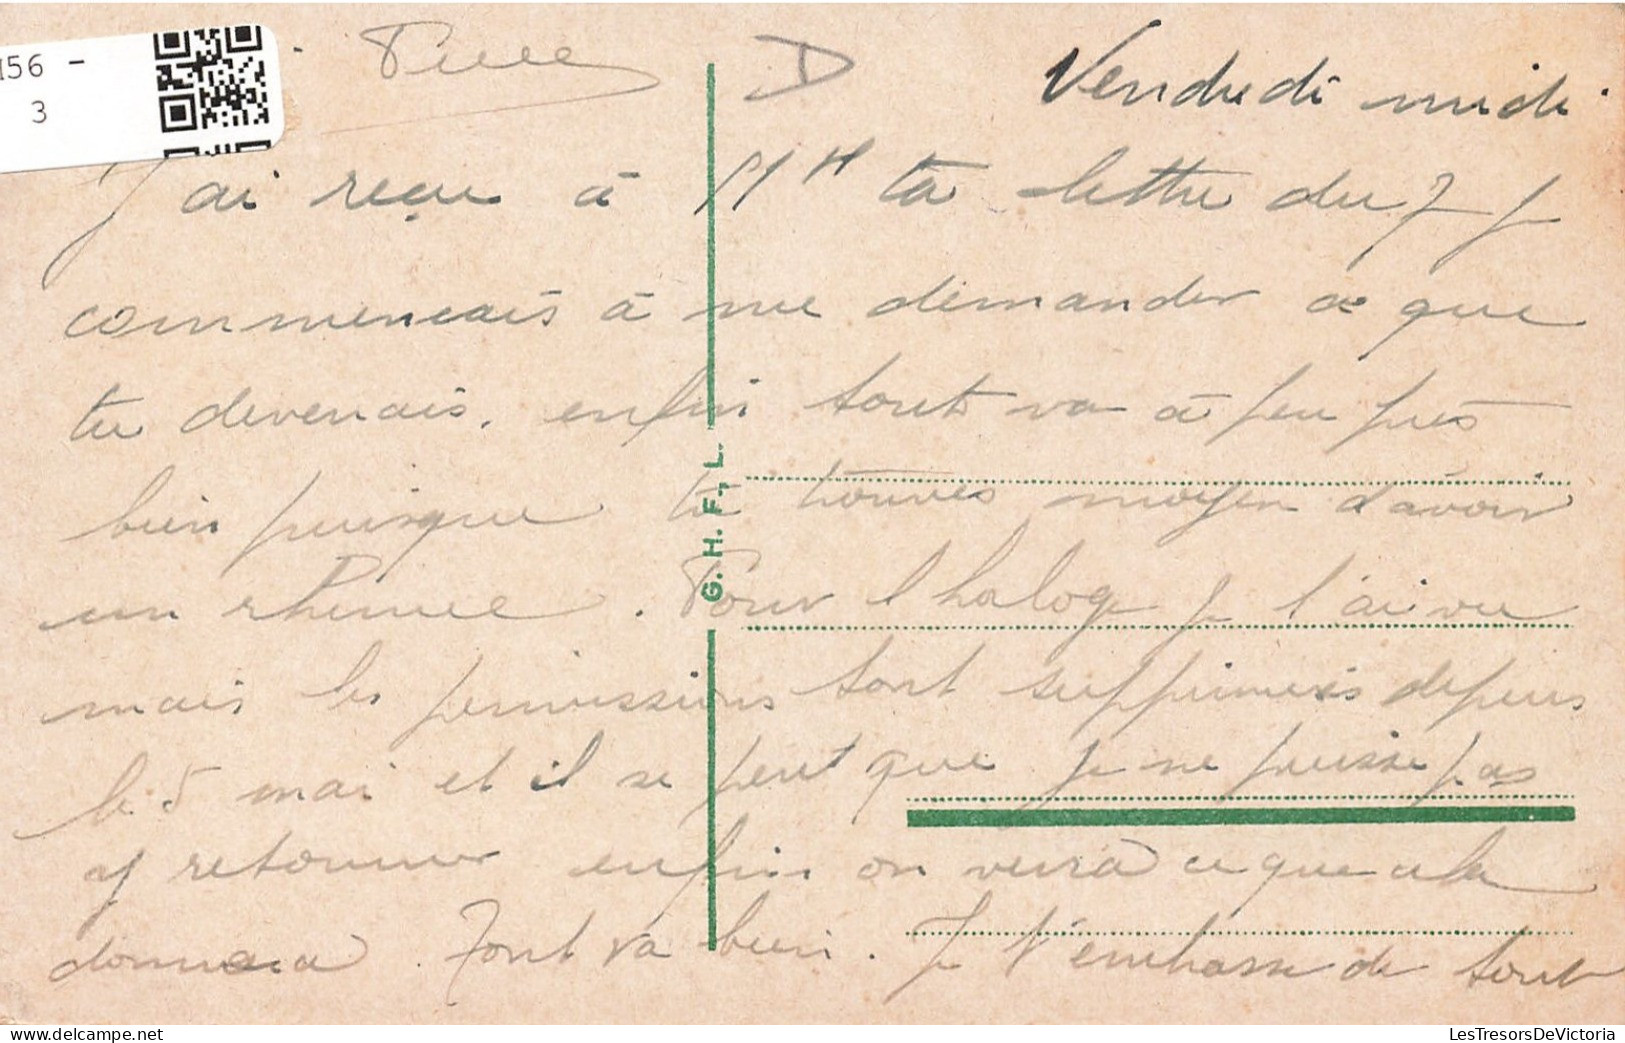 I56 -
3
D
Vendredi midi
J'ai reçu à 11 H ta lettre du 7 Je
commencais à me demander ce que
tu devenais, enfin tout va à peu près
bien puisque tu trouves moyen d'avoir
un rhume. Pour l'haloge je l'ai vu
mais les permissions sont supprimées depuis
le 5 mai et il se peut que je ne puisse pas
y retourner enfin on verra ce que cela
donnera. Tout va bien. Je t'embrasse de tout
G. H. F., L.
LesTresorsDeVictoria